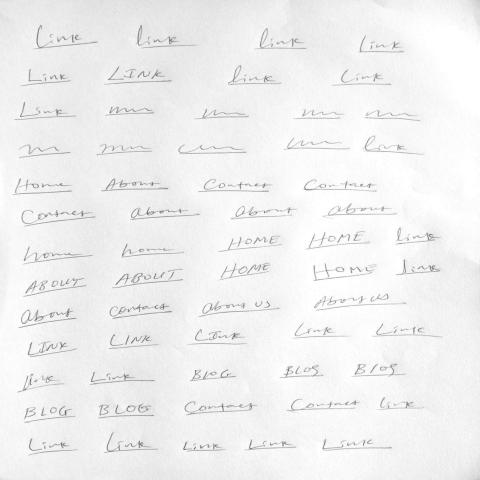 Link link link link
Link LINK link Link
Link
link
Home About Contact Contact
Contact About About About
home home HOME HOME link
ABOUT ABOUT HOME HOME link
About contact About us About us
LINK LINK LINK Link Link
link Link BLOG BLOG BLOG
BLOG BLOG Contact Contact link
Link Link Link Link Link